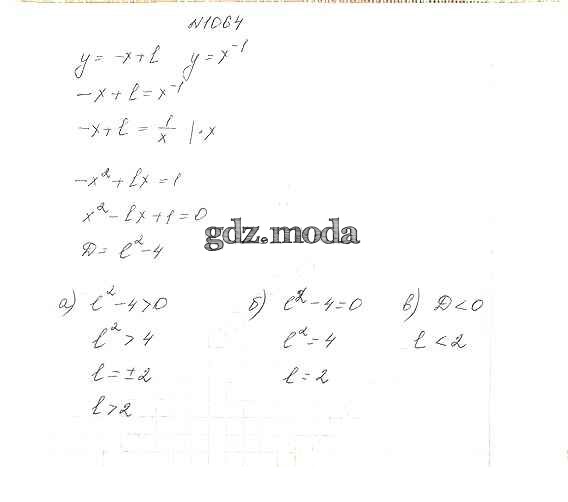 N1064
y = -x + l   y = x⁻¹
-x + l = x⁻¹
-x + l = 1/x |·x
-x² + lx = 1
x² - lx + 1 = 0
D = l² - 4
gdz.moda
а) l² - 4 > 0
l² > 4
l = ±2
l > 2
б) l² - 4 = 0
l² = 4
l = 2
в) D < 0
l < 2